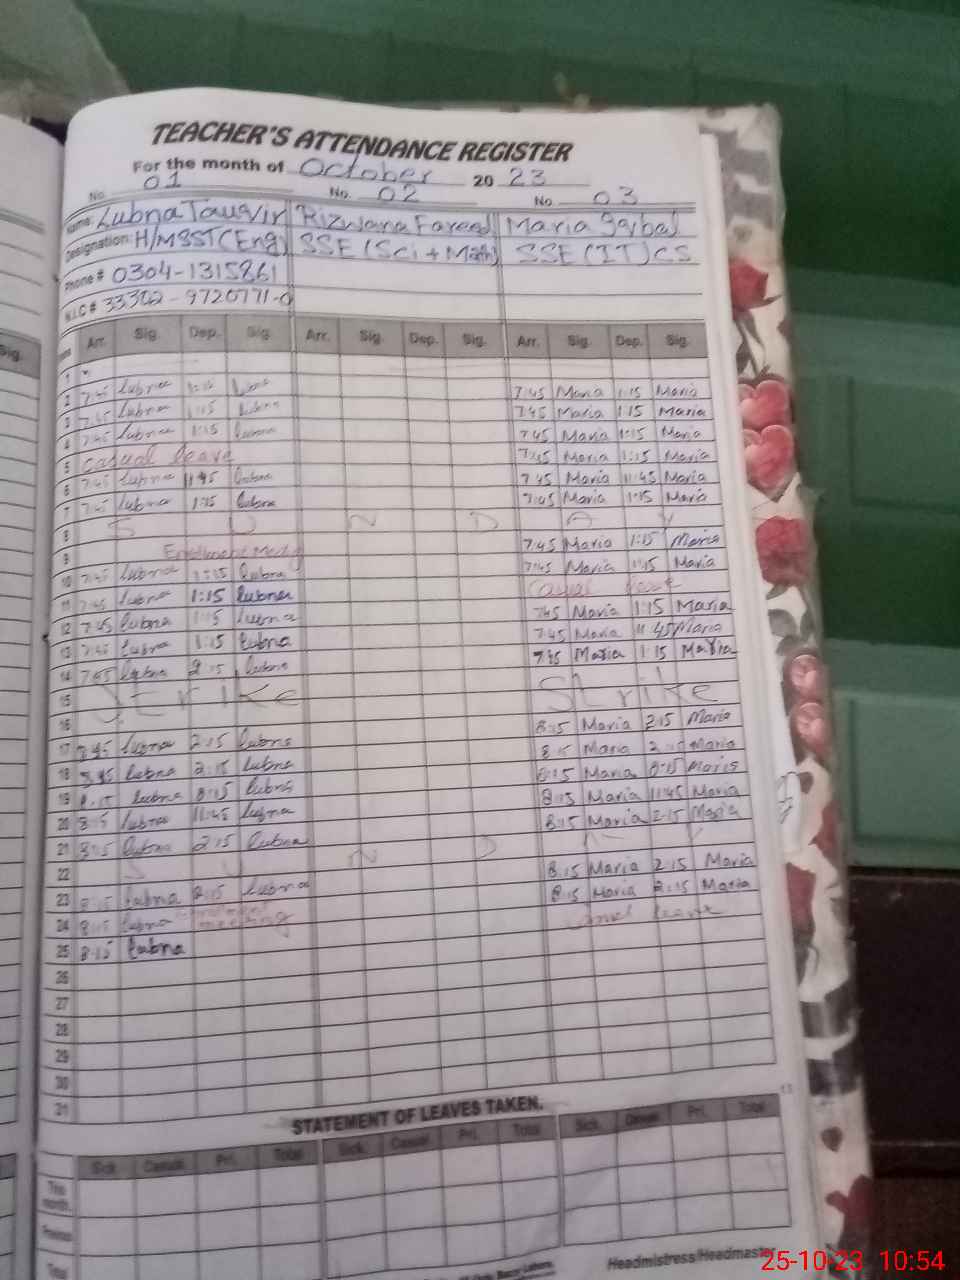 TEACHER'S ATTENDANCE REGISTER
For the month of October 20 23
No. 01 No. 02 No. 03
Name: Lubna Tauqir Rizwana Fareed Maria Iqbal
Designation: H/M SST (Eng) SSE (Sci + Math) SSE (IT) CS
Phone # 0304-1315861
N.I.C #
Sig.
Arr. Sig. Dep. Sig. Arr. Sig. Dep. Sig. Arr. Sig. Dep. Sig.
1
2 7:45 lubna 1:15 lubna 7:45 Maria 1:15 Maria
3 7:45 lubna 1:15 lubna 7:45 Maria 1:15 Maria
4 7:45 lubna 1:15 lubna 7:45 Maria 1:15 Maria
5 casual leave 7:45 Maria 1:15 Maria
6 7:45 lubna 11:45 lubna 7:45 Maria 11:45 Maria
7 7:45 lubna 1:15 lubna 7:45 Maria 1:15 Maria
8 S U N D A Y
9 Enrollment 7:45 Maria 1:15 Maria
10 7:45 lubna 1:15 lubna 7:45 Maria 1:15 Maria
11 7:45 lubna 1:15 lubna Casual leave
12 7:45 lubna 1:15 lubna 7:45 Maria 1:15 Maria
13 7:45 lubna 1:15 lubna 7:45 Maria 11:45 Maria
14 7:45 lubna 2:15 lubna 7:45 Maria 1:15 Maria
15 Strike Strike
16 8:15 Maria 2:15 Maria
17 lubna 2:15 lubna 8:15 Maria 2:15 Maria
18 lubna 2:15 lubna 8:15 Maria Maria
19 8:15 lubna lubna 8:15 Maria 11:45 Maria
20 8:15 lubna 11:45 lubna 8:15 Maria 2:15 Maria
21 8:15 lubna 2:15 lubna
22 S U N D A Y 8:15 Maria 2:15 Maria
23 8:15 lubna 2:15 lubna 8:15 Maria 2:15 Maria
24 8:15 lubna enrollment meeting leave
25 8:15 lubna
26
27
28
29
30
31
STATEMENT OF LEAVES TAKEN.
Sick Casual Pri. Total Sick Casual Pri. Total Sick Casual Pri. Total
This month.
Previous
Total
Headmistress/Headmaster
25-10-23 10:54